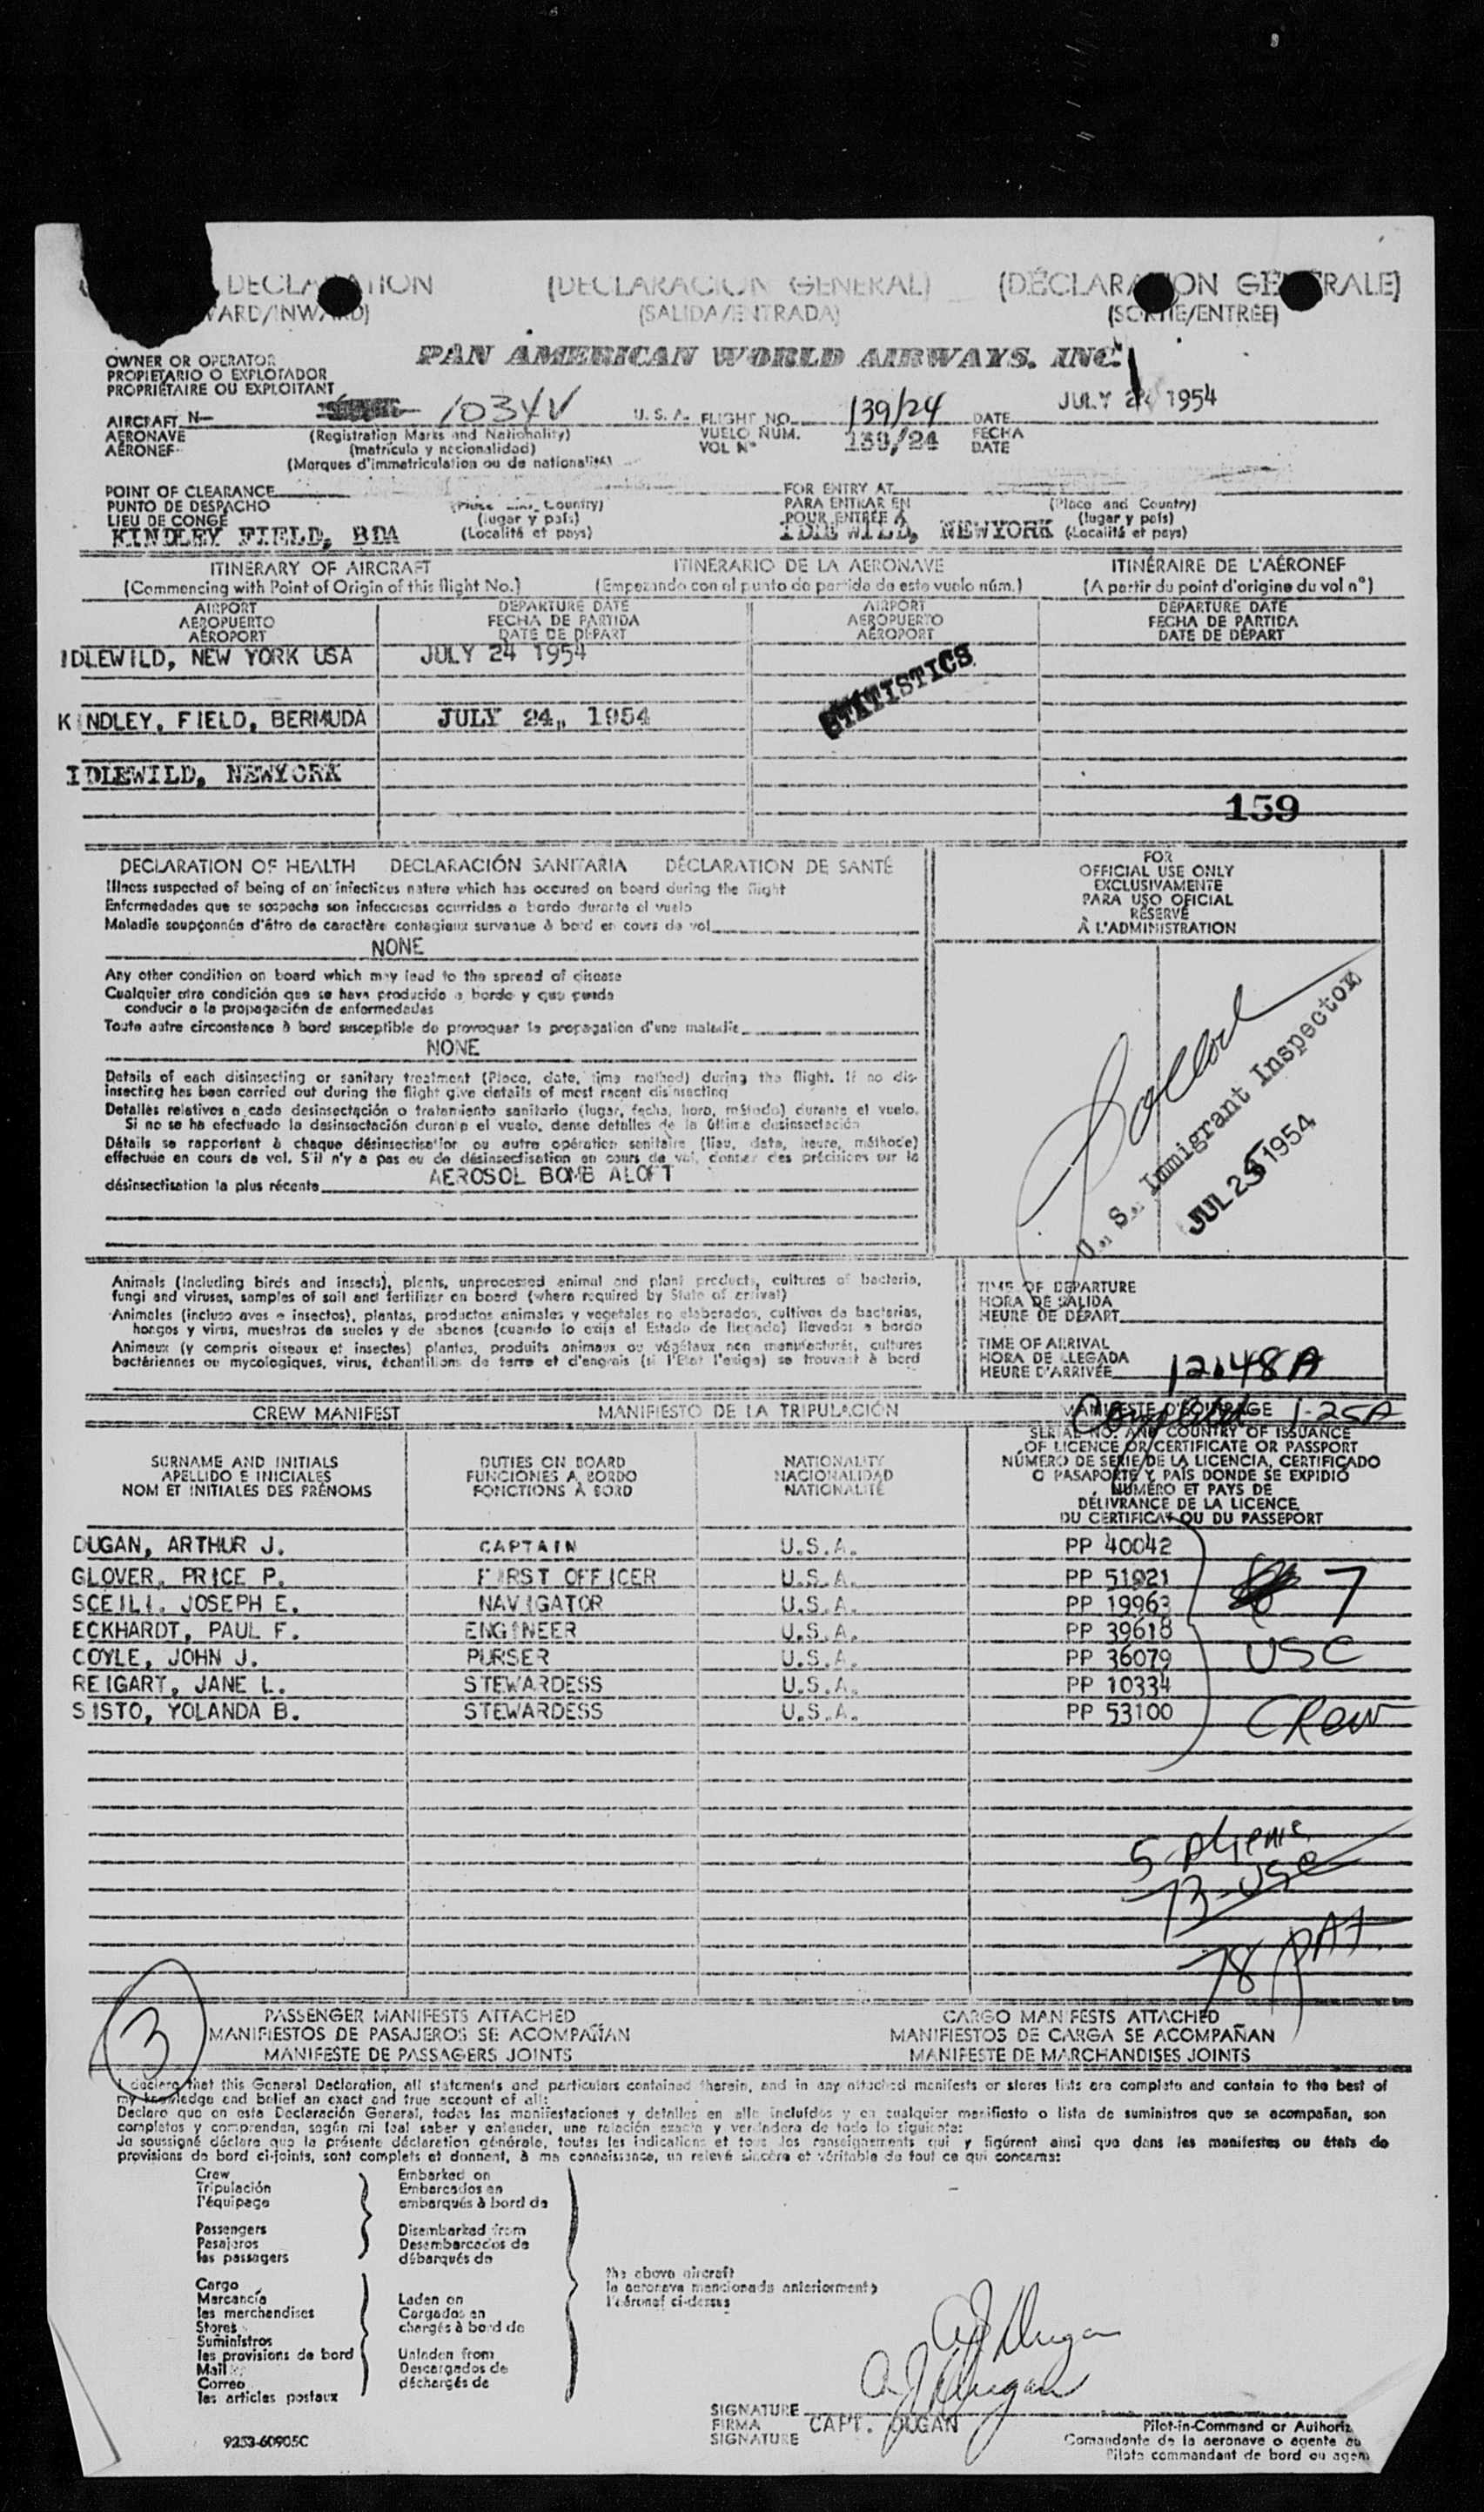 DECLARATION (DECLARACION GENERAL) (DÉCLARATION GÉNÉRALE)
WARD/INWARD) (SALIDA/ENTRADA) (SORTIE/ENTRÉE)
OWNER OR OPERATOR
PROPIETARIO O EXPLOTADOR
PROPRIÉTAIRE OU EXPLOITANT
PAN AMERICAN WORLD AIRWAYS. INC.
JULY 24 1954
AIRCRAFT N- 1034V U. S. A. FLIGHT NO. 139/24 DATE
AERONAVE (Registration Marks and Nationality) VUELO NÚM. 139/24 FECHA
AÉRONEF (matrícula y nacionalidad) VOL Nº DATE
(Marques d'immatriculation ou de nationalité)
POINT OF CLEARANCE FOR ENTRY AT
PUNTO DE DESPACHO (Place and Country) PARA ENTRAR EN (Place and Country)
LIEU DE CONGÉ (lugar y país) POUR ENTRÉE À (lugar y país)
KINDLEY FIELD, BDA (Localité et pays) IDLEWILD, NEWYORK (Localité et pays)
ITINERARY OF AIRCRAFT ITINERARIO DE LA AERONAVE ITINÉRAIRE DE L'AÉRONEF
(Commencing with Point of Origin of this flight No.) (Empezando con el punto de partida de este vuelo núm.) (A partir du point d'origine du vol nº)
AIRPORT DEPARTURE DATE AIRPORT DEPARTURE DATE
AEROPUERTO FECHA DE PARTIDA AEROPUERTO FECHA DE PARTIDA
AÉROPORT DATE DE DÉPART AÉROPORT DATE DE DÉPART
IDLEWILD, NEW YORK USA JULY 24 1954
STATISTICS
KINDLEY, FIELD, BERMUDA JULY 24, 1954
IDLEWILD, NEWYORK
159
DECLARATION OF HEALTH DECLARACIÓN SANITARIA DÉCLARATION DE SANTÉ
Illness suspected of being of an infecticus nature which has occured on board during the flight
Enfermedades que se sospecha son infecciosas ocurridas a bordo durante el vuelo
Maladie soupçonnée d'être de caractère contagieux survenue à bord en cours de vol
NONE
Any other condition on board which may lead to the spread of disease
Cualquier otra condición que se haya producido a bordo y que pueda
conducir a la propagación de enfermedades
Toute autre circonstance à bord susceptible de provoquer la propagation d'une maladie
NONE
Details of each disinsecting or sanitary treatment (Place, date, time method) during the flight. If no dis-
insecting has been carried out during the flight give details of most recent disinsecting
Detalles relativos a cada desinsectación o tratamiento sanitario (lugar, fecha, hora, método) durante el vuelo.
Si no se ha efectuado la desinsectación durante el vuelo, dense detalles de la última desinsectación
Détails se rapportant à chaque désinsectisation ou autre opération sanitaire (lieu, date, heure, méthode)
effectuée en cours de vol. S'il n'y a pas eu de désinsectisation en cours de vol, donner des précisions sur la
désinsectisation la plus récente AEROSOL BOMB ALOFT
FOR
OFFICIAL USE ONLY
EXCLUSIVAMENTE
PARA USO OFICIAL
RÉSERVÉ
À L'ADMINISTRATION
U. S. Immigrant Inspector
JUL 25 1954
Animals (including birds and insects), plants, unprocessed animal and plant products, cultures of bacteria,
fungi and viruses, samples of soil and fertilizer on board (where required by State of arrival)
Animales (incluso aves e insectos), plantas, productos animales y vegetales no elaborados, cultivos de bacterias,
hongos y virus, muestras de suelos y de abonos (cuando lo exija el Estado de llegada) llevados a bordo
Animaux (y compris oiseaux et insectes) plantes, produits animaux ou végétaux non manufacturés, cultures
bactériennes ou mycologiques, virus, échantillons de terre et d'engrais (si l'État l'exige) se trouvant à bord
TIME OF DEPARTURE
HORA DE SALIDA
HEURE DE DÉPART
TIME OF ARRIVAL
HORA DE LLEGADA
HEURE D'ARRIVÉE 12:48A
Completed 1-25A
CREW MANIFEST MANIFIESTO DE LA TRIPULACIÓN MANIFESTE D'ÉQUIPAGE
SURNAME AND INITIALS
APELLIDO E INICIALES
NOM ET INITIALES DES PRÉNOMS
DUTIES ON BOARD
FUNCIONES A BORDO
FONCTIONS À BORD
NATIONALITY
NACIONALIDAD
NATIONALITÉ
SERIAL NO. AND COUNTRY OF ISSUANCE
OF LICENCE OR CERTIFICATE OR PASSPORT
NÚMERO DE SERIE DE LA LICENCIA, CERTIFICADO
O PASAPORTE Y PAÍS DONDE SE EXPIDIÓ
NUMÉRO ET PAYS DE
DÉLIVRANCE DE LA LICENCE
DU CERTIFICAT OU DU PASSEPORT
DUGAN, ARTHUR J. CAPTAIN U.S.A. PP 40042
GLOVER, PRICE P. FIRST OFFICER U.S.A. PP 51921 7
SCEILI, JOSEPH E. NAVIGATOR U.S.A. PP 19963
ECKHARDT, PAUL F. ENGINEER U.S.A. PP 39618
COYLE, JOHN J. PURSER U.S.A. PP 36079 USC
REIGART, JANE L. STEWARDESS U.S.A. PP 10334
SISTO, YOLANDA B. STEWARDESS U.S.A. PP 53100 CREW
5-Aliens
73-USC
78 PAX
3
PASSENGER MANIFESTS ATTACHED CARGO MANIFESTS ATTACHED
MANIFIESTOS DE PASAJEROS SE ACOMPAÑAN MANIFIESTOS DE CARGA SE ACOMPAÑAN
MANIFESTE DE PASSAGERS JOINTS MANIFESTE DE MARCHANDISES JOINTS
I declare that this General Declaration, all statements and particulars contained therein, and in any attached manifests or stores lists are complete and contain to the best of
my knowledge and belief an exact and true account of all:
Declaro que en esta Declaración General, todas las manifestaciones y detalles en ella incluídos y en cualquier manifiesto o lista de suministros que se acompañan, son
completos y comprenden, según mi leal saber y entender, una relación exacta y verdadera de todo lo siguiente:
Je soussigné déclare que la présente déclaration générale, toutes les indications et tous les renseignements qui y figúrent ainsi que dans les manifestes ou états de
provisions de bord ci-joints, sont complets et donnent, à ma connaissance, un relevé sincère et véritable de tout ce qui concerne:
Crew Embarked on
Tripulación Embarcados en
l'équipage embarqués à bord de
Passengers Disembarked from
Pasajeros Desembarcados de
les passagers débarqués de
the above aircraft
la aeronave mencionada anteriormente
l'aéronef ci-dessus
Cargo
Mercancía Laden on
les marchandises Cargados en
Stores chargés à bord de
Suministros
les provisions de bord Unladen from
Mail Descargados de
Correo déchargés de
les articles postaux
A J Dugan
A J Dugan
SIGNATURE
FIRMA CAPT. DUGAN
SIGNATURE
Pilot-in-Command or Authoriz
Comandante de la aeronave o agente au
Pilote commandant de bord ou agen
9253-60905C